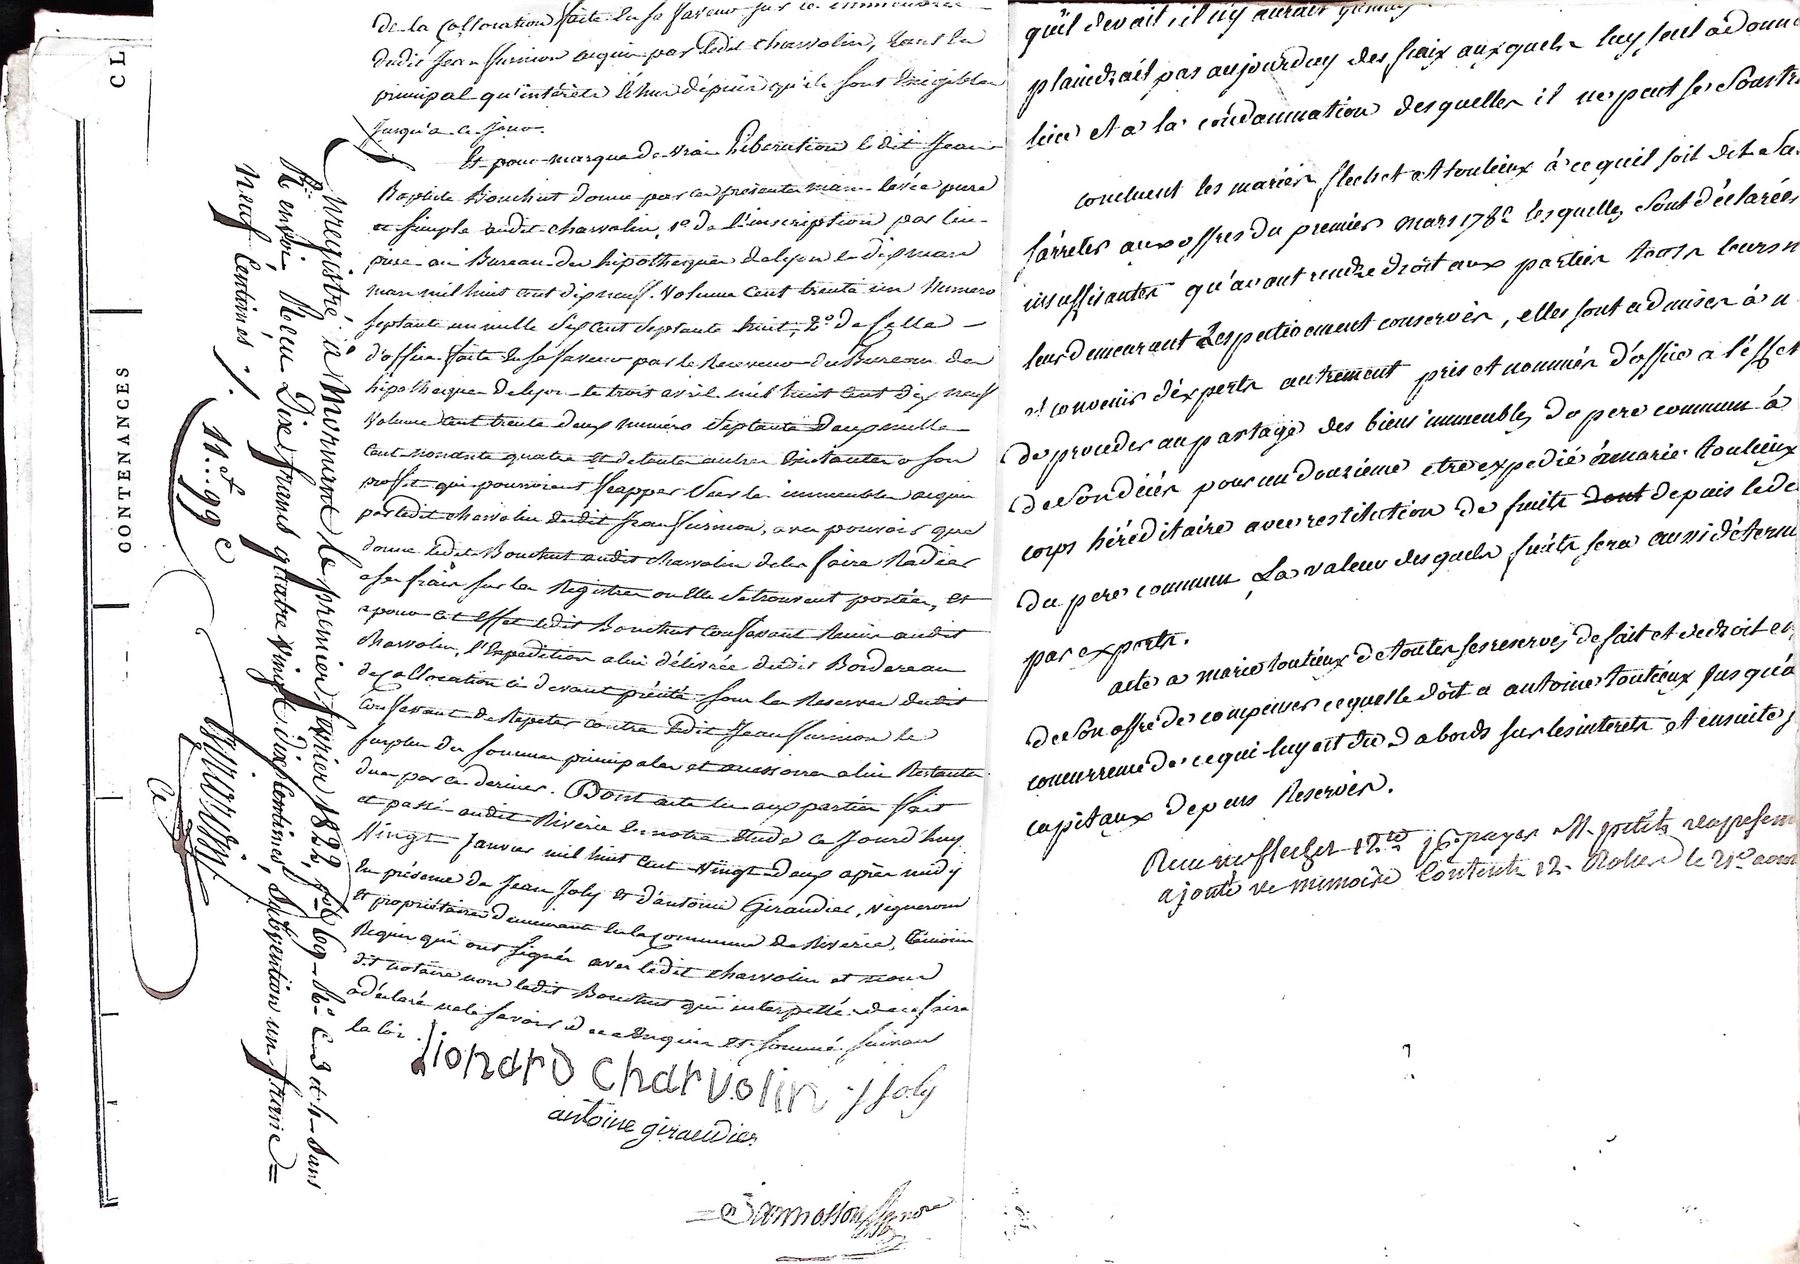 de la Collocation faite en sa faveur sur les immeubles
dudit Jean furnion acquis par ledit charvolin, tant en
principal qu'intérêts échus depuis qu'ils sont exigibles
Jusqu'a ce jour.
Et pour marque de vraie Libération ledit Jean
Baptiste Bouchut donne par ces présentes main levée pure
et simple audit charvolin, 1º de l'inscription par lui
prise au Bureau des hipotheques de lyon le dix mars
mars mil huit cent dix neuf. Volume cent trente un Numero
septante un mille six cent septante huit, 2º de Celle
d'office faite en sa faveur par le Receveur du Bureau des
hipotheques de lyon le trois avril mil huit cent dix neuf
Volume cent trente deux numéro septante deux mille
cent nonante quatre et de toutes autres existantes a son
profit qui pourroient frapper sur les immeubles acquis
par ledit charvolin dudit Jean furnion, avec pouvoir que
donne ledit Bouchut audit charvolin de les faire Radier
a ses frais sur les Registres ou elle se trouvent portées, et
a pour cet effet ledit Bouchut Confessant Remis audit
charvolin, l'Expedition a lui délivrée dudit Bordereau
de Collocation ci devant précité sous les Reserves dudit
Confessant de Répéter contre ledit Jean furnion le
surplus des sommes principales et accessoires a lui Restantes
dues par ce dernier. Dont acte lu aux parties fait
et passé audit Riverie en notre étude ce Jourd'huy
Vingt Janvier mil huit cent vingt deux après midy
En présence de Jean Joly et d'antoine Giraudier, vignerons
et propriétaires demeurants en la commune de Riverie, témoins
Requis qui ont signés avec ledit charvolin et nous
dit notaire non ledit Bouchut qui interpellé de ce faire
a déclaré ne le savoir de ce Enquis et sommé suivant
la loi.
lionard charvolin J Joly
antoine giraudier
CL
CONTENANCES
Enregistré à Mornant le premier février 1822, fol 69 Rº C 3 et 4 sans
Renvoi Reçu Dix francs quatre vingt dix centimes, subvention un franc =
Neuf Centimes ./.
11.f 99 c
qu'il devait, il n'y aurait
plaindrait pas aujourduy des fraix auxquels luy seul a donné
lieu et a la condamnation desquelles il ne peut se Soustr
concluent les mariés flechet et toulieux à ce qu'il soit dit sa
s'arrêter aux offres du premier mars 178 lesquelles Sont déclarées
insuffisantes qu'avant rendre droit aux parties tous leurs m
leur demeurant Respectivement conservés, elles sont admises à n
et convenir d'experts autrement pris et nommés d'office a l'effet
de proceder au partage des biens immeubles du pere commun à
de Son décès pour un douzieme etre expedié à marie toulieux
corps héréditaire avec restitution de fruits dont depuis le de
du pere commun La valeur desquels fruits sera aussi déterm
par experts.
acte a marie toulieux de toutes ses reserves de fait et de droit et
de Son offre de compenser ce quelle doit a antoine toulieux Jusqu'à
concurrence de ce qui luy est dû d'abords sur les interets et ensuite
capitaux depens Reservés.
ajouté
memoire Contenant 12 Roles le 21e aout